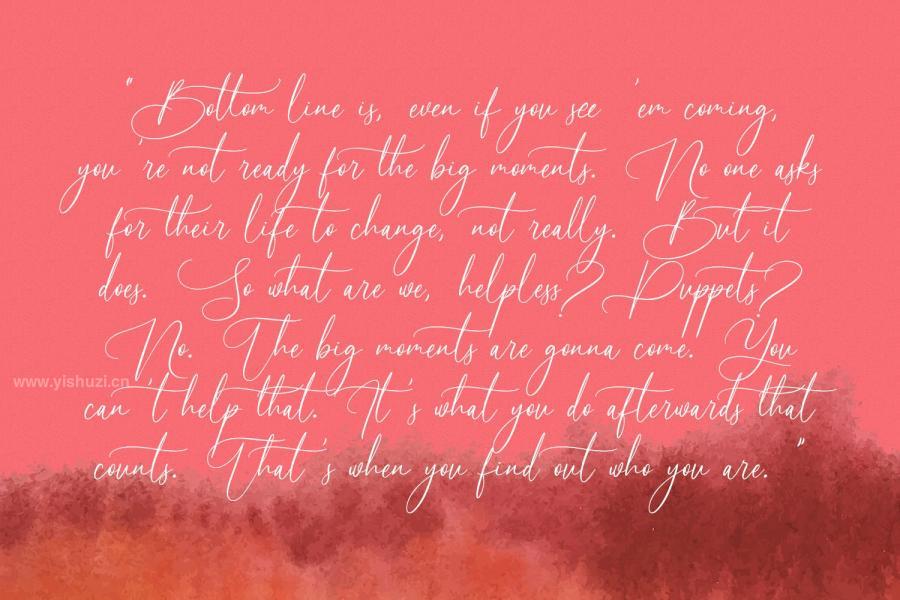 "Bottom line is, even if you see 'em coming,
you 're not ready for the big moments. No one asks
for their life to change, not really. But it
does. So what are we, helpless? Puppets?
No. The big moments are gonna come. You
www.yishuzi.cn
can 't help that. It 's what you do afterwards that
counts. That 's when you find out who you are. "